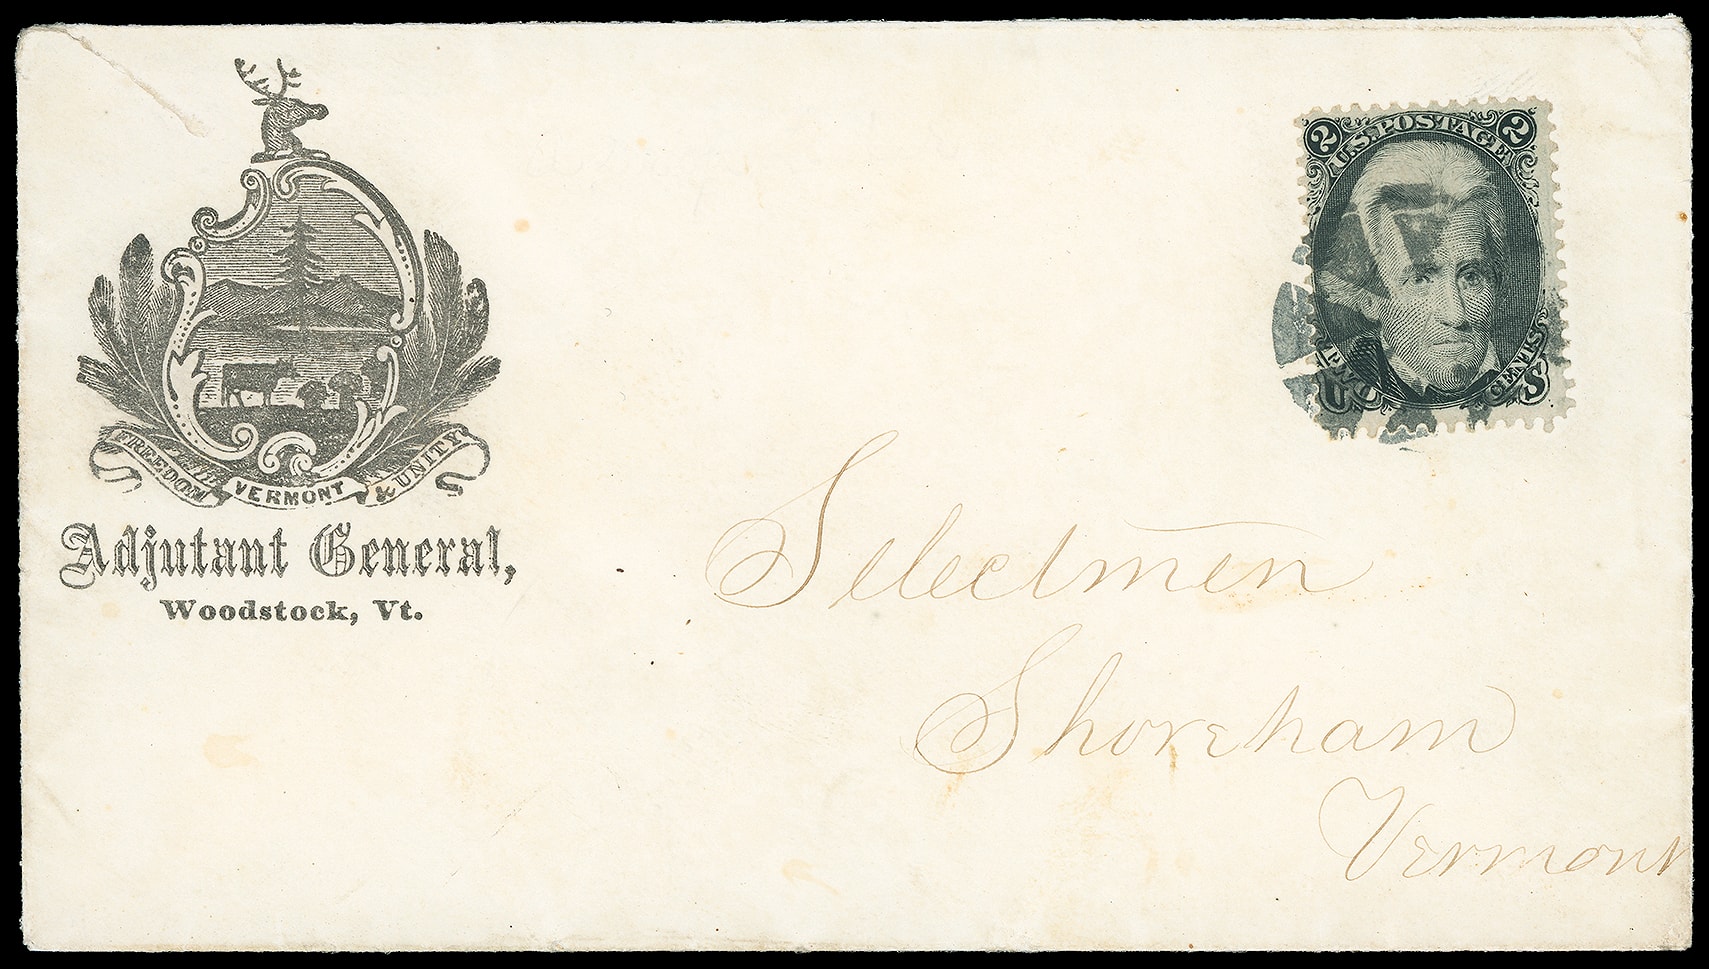 FREEDOM VERMONT & UNITY
Adjutant General,
Woodstock, Vt.
2 U.S. POSTAGE 2
TWO CENTS
U S
Selectmen
Shoreham
Vermont